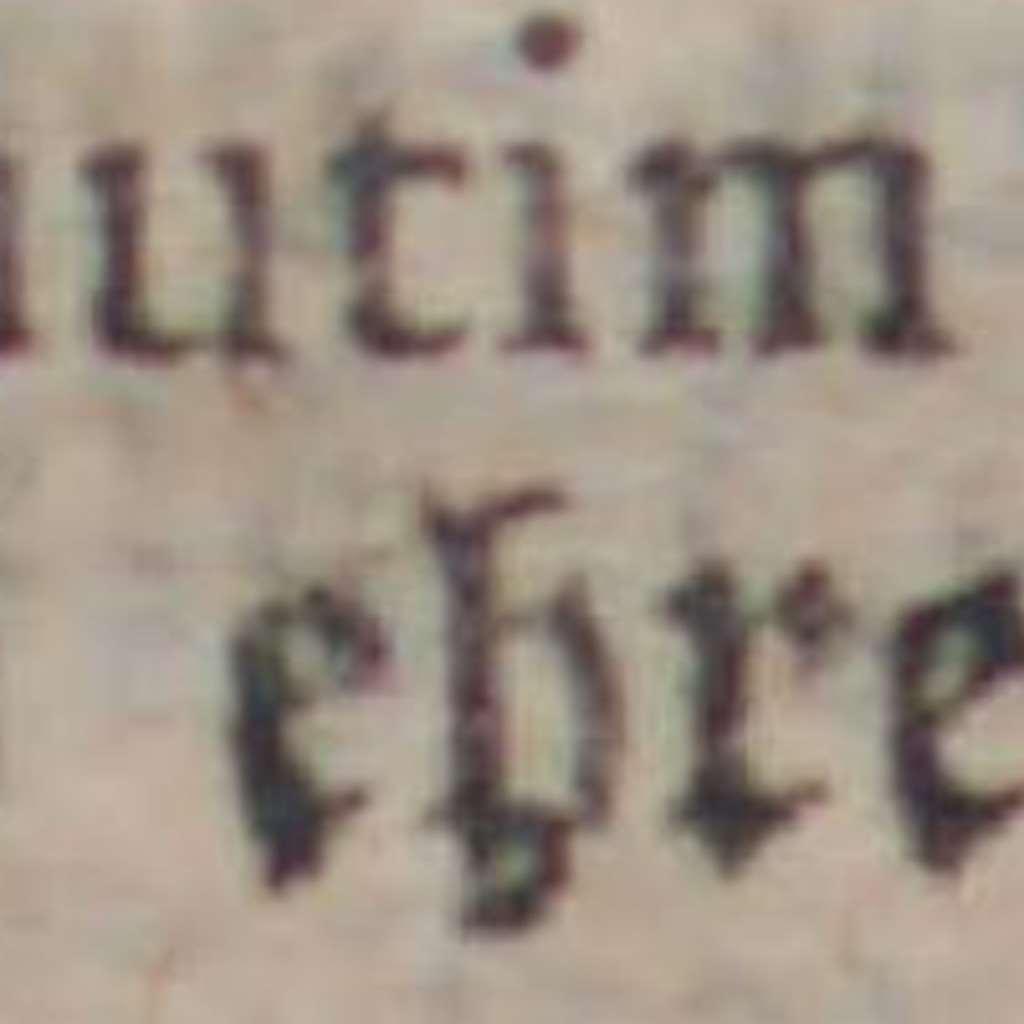 utim
ebre